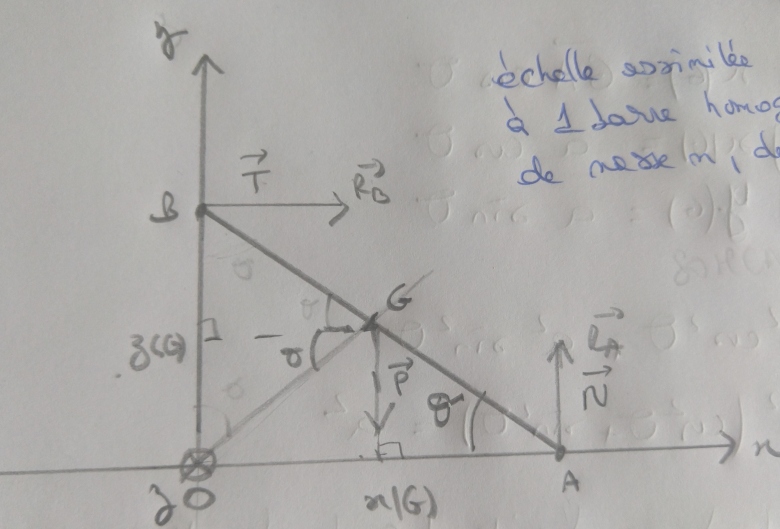 y
échelle assimilée
à 1 barre homog
de masse m, de
T
R_B
B
θ
θ
G
y(G)
-θ
P
θ
R_A
N
θ
x
z O
x(G)
A